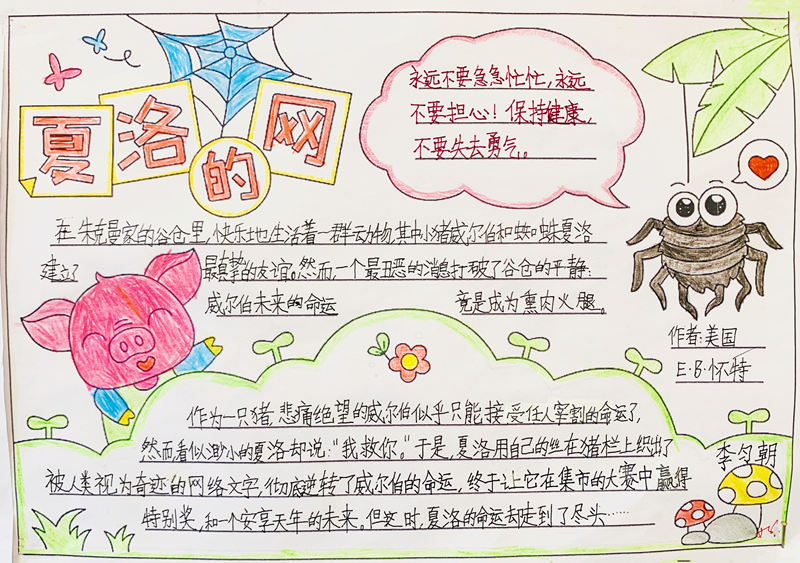 夏洛的网
永远不要急急忙忙，永远
不要担心！保持健康，
不要失去勇气。
在朱克曼家的谷仓里，快乐地生活着一群动物，其中小猪威尔伯和蜘蛛夏洛
建立了最真挚的友谊。然而，一个最丑恶的消息打破了谷仓的平静：
威尔伯未来的命运竟是成为熏肉火腿。
作者：美国
E·B·怀特
作为一只猪，悲痛绝望的威尔伯似乎只能接受任人宰割的命运了，
然而看似渺小的夏洛却说：“我救你。”于是，夏洛用自己的丝在猪栏上织出了
被人类视为奇迹的网络文字，彻底逆转了威尔伯的命运，终于让它在集市的大赛中赢得
特别奖，和一个安享天年的未来。但这时，夏洛的命运却走到了尽头……